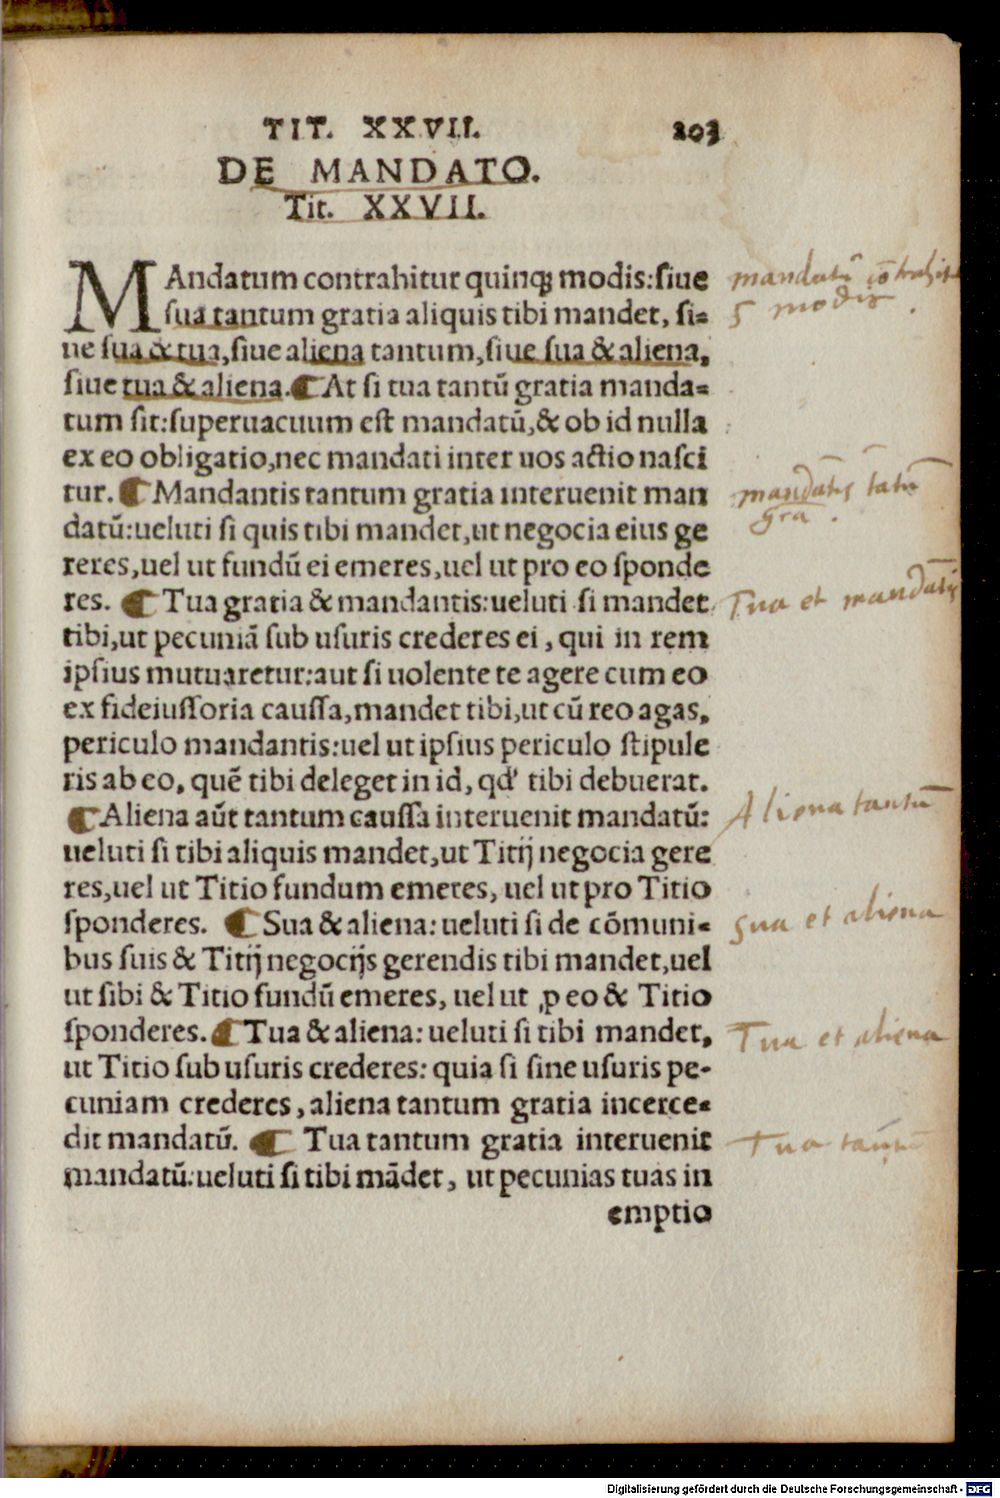 TIT. XXVII. 203
DE MANDATO.
Tit. XXVII.
MAndatum contrahitur quinqꝫ modis:siue
sua tantum gratia aliquis tibi mandet, si=
ue sua & tua,siue aliena tantum,siue sua & aliena,
siue tua & aliena.¶At si tua tantũ gratia manda=
tum sit:superuacuum est mandatũ,& ob id nulla
ex eo obligatio,nec mandati inter uos actio nasci
tur.¶Mandantis tantum gratia interuenit man
datũ:ueluti si quis tibi mandet,ut negocia eius ge
reres,uel ut fundũ ei emeres,uel ut pro eo sponde
res. ¶Tua gratia & mandantis:ueluti si mandet
tibi,ut pecuniã sub usuris crederes ei , qui in rem
ipsius mutuaretur:aut si uolente te agere cum eo
ex fideiussoria caussa,mandet tibi,ut cũ reo agas,
periculo mandantis:uel ut ipsius periculo stipule
ris ab eo, quẽ tibi deleget in id, qd' tibi debuerat.
¶Aliena aũt tantum caussa interuenit mandatũ:
ueluti si tibi aliquis mandet,ut Titij negocia gere
res,uel ut Titio fundum emeres, uel ut pro Titio
sponderes. ¶Sua & aliena: ueluti si de cõmuni=
bus suis & Titij negocijs gerendis tibi mandet,uel
ut sibi & Titio fundũ emeres, uel ut ꝓ eo & Titio
sponderes.¶Tua & aliena: ueluti si tibi mandet,
ut Titio sub usuris crederes: quia si sine usuris pe-
cuniam crederes, aliena tantum gratia incerce=
dit mandatũ. ¶ Tua tantum gratia interuenit
mandatũ:ueluti si tibi mãdet, ut pecunias tuas in
emptio
mandatũ cõtrahit
5 modis .
mandãtis tatũ
gra .
Tua et mandãtis
Aliena tantũ
Sua et aliena
Tua et aliena
Tua tantũ
Digitalisierung gefördert durch die Deutsche Forschungsgemeinschaft - DFG